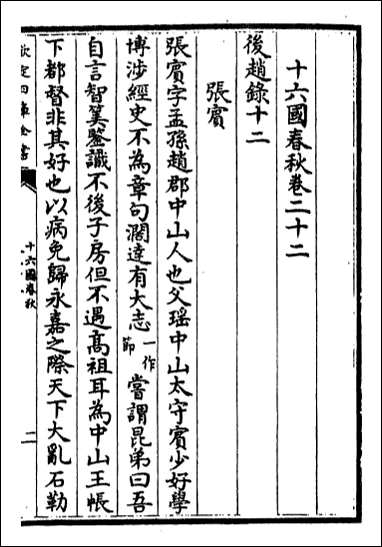 十六國春秋卷二十二
後趙錄十二
張賓
張賓字孟孫趙郡中山人也父瑶中山太守賓少好學
博涉經史不為章句濶達有大志一作節嘗謂昆弟曰吾
自言智筭鑒識不後子房但不遇髙祖耳為中山王帳
下都督非其好也以病免歸永嘉之際天下大亂石勒
欽定四庫全書
十六國春秋